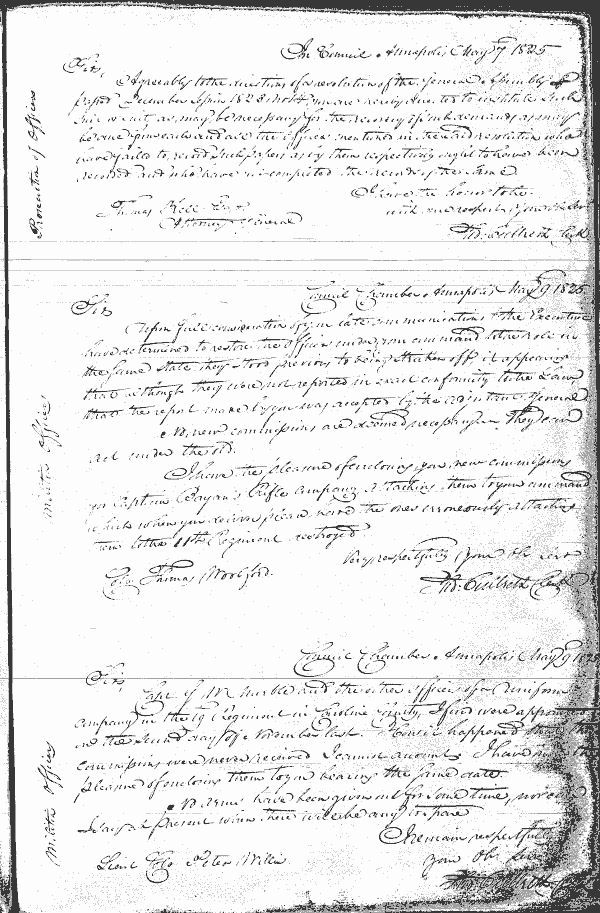 In Council Annapolis May 7 1825
Sir,
Agreeably to the directions of a resolution of the General Assembly
passed December Session 1823 you are directed to institute such
suit or suits as may be necessary for the recovery of such as may
be and all the Officers mentioned in the said resolution who
have failed to record such papers as by them respectively ought to have been
recorded and who have not completed the records of the same
I have the honor to be
with respect Your Ob. Serv
Thomas Kell Esqr
Attorney General
Th: Culbreth Clk
Council Chamber Annapolis May 9 1825
Sir
Upon full consideration of your late communication to the Executive
have determined to restore the Officers under your command to the role in
the same state they stood previous to being stricken off, it appears
that although they were not reported in exact conformity to the Law
that the report made by you was accepted by the Adjutant General
No new commissions are deemed necessary They can
act under the old.
I have the pleasure of enclosing you new commissions
for Captain Rifle Company attaching them to your command
which when you receive please send the ones erroneously attaching
them to the 11th Regiment destroyed
Very respectfully Your Ob. Serv
Colo Thomas Woolford.
Th: Culbreth Clk
Militia Officers
Council Chamber Annapolis May 9 182
Sir,
Capt and the other officers of a Uniform
Company in the 19 Regiment in Caroline County, I find were appointed
on the second day of November last. How it happened that the
commissions were never received I cannot account. I have now the
pleasure of enclosing them to you bearing the same date.
No Arms have been given out for some time, nor can
I say at present when there will be any to spare
I remain respectfully
Your Ob. Serv
Lieut Colo Peter Willis
Th: Culbreth
Militia Officers